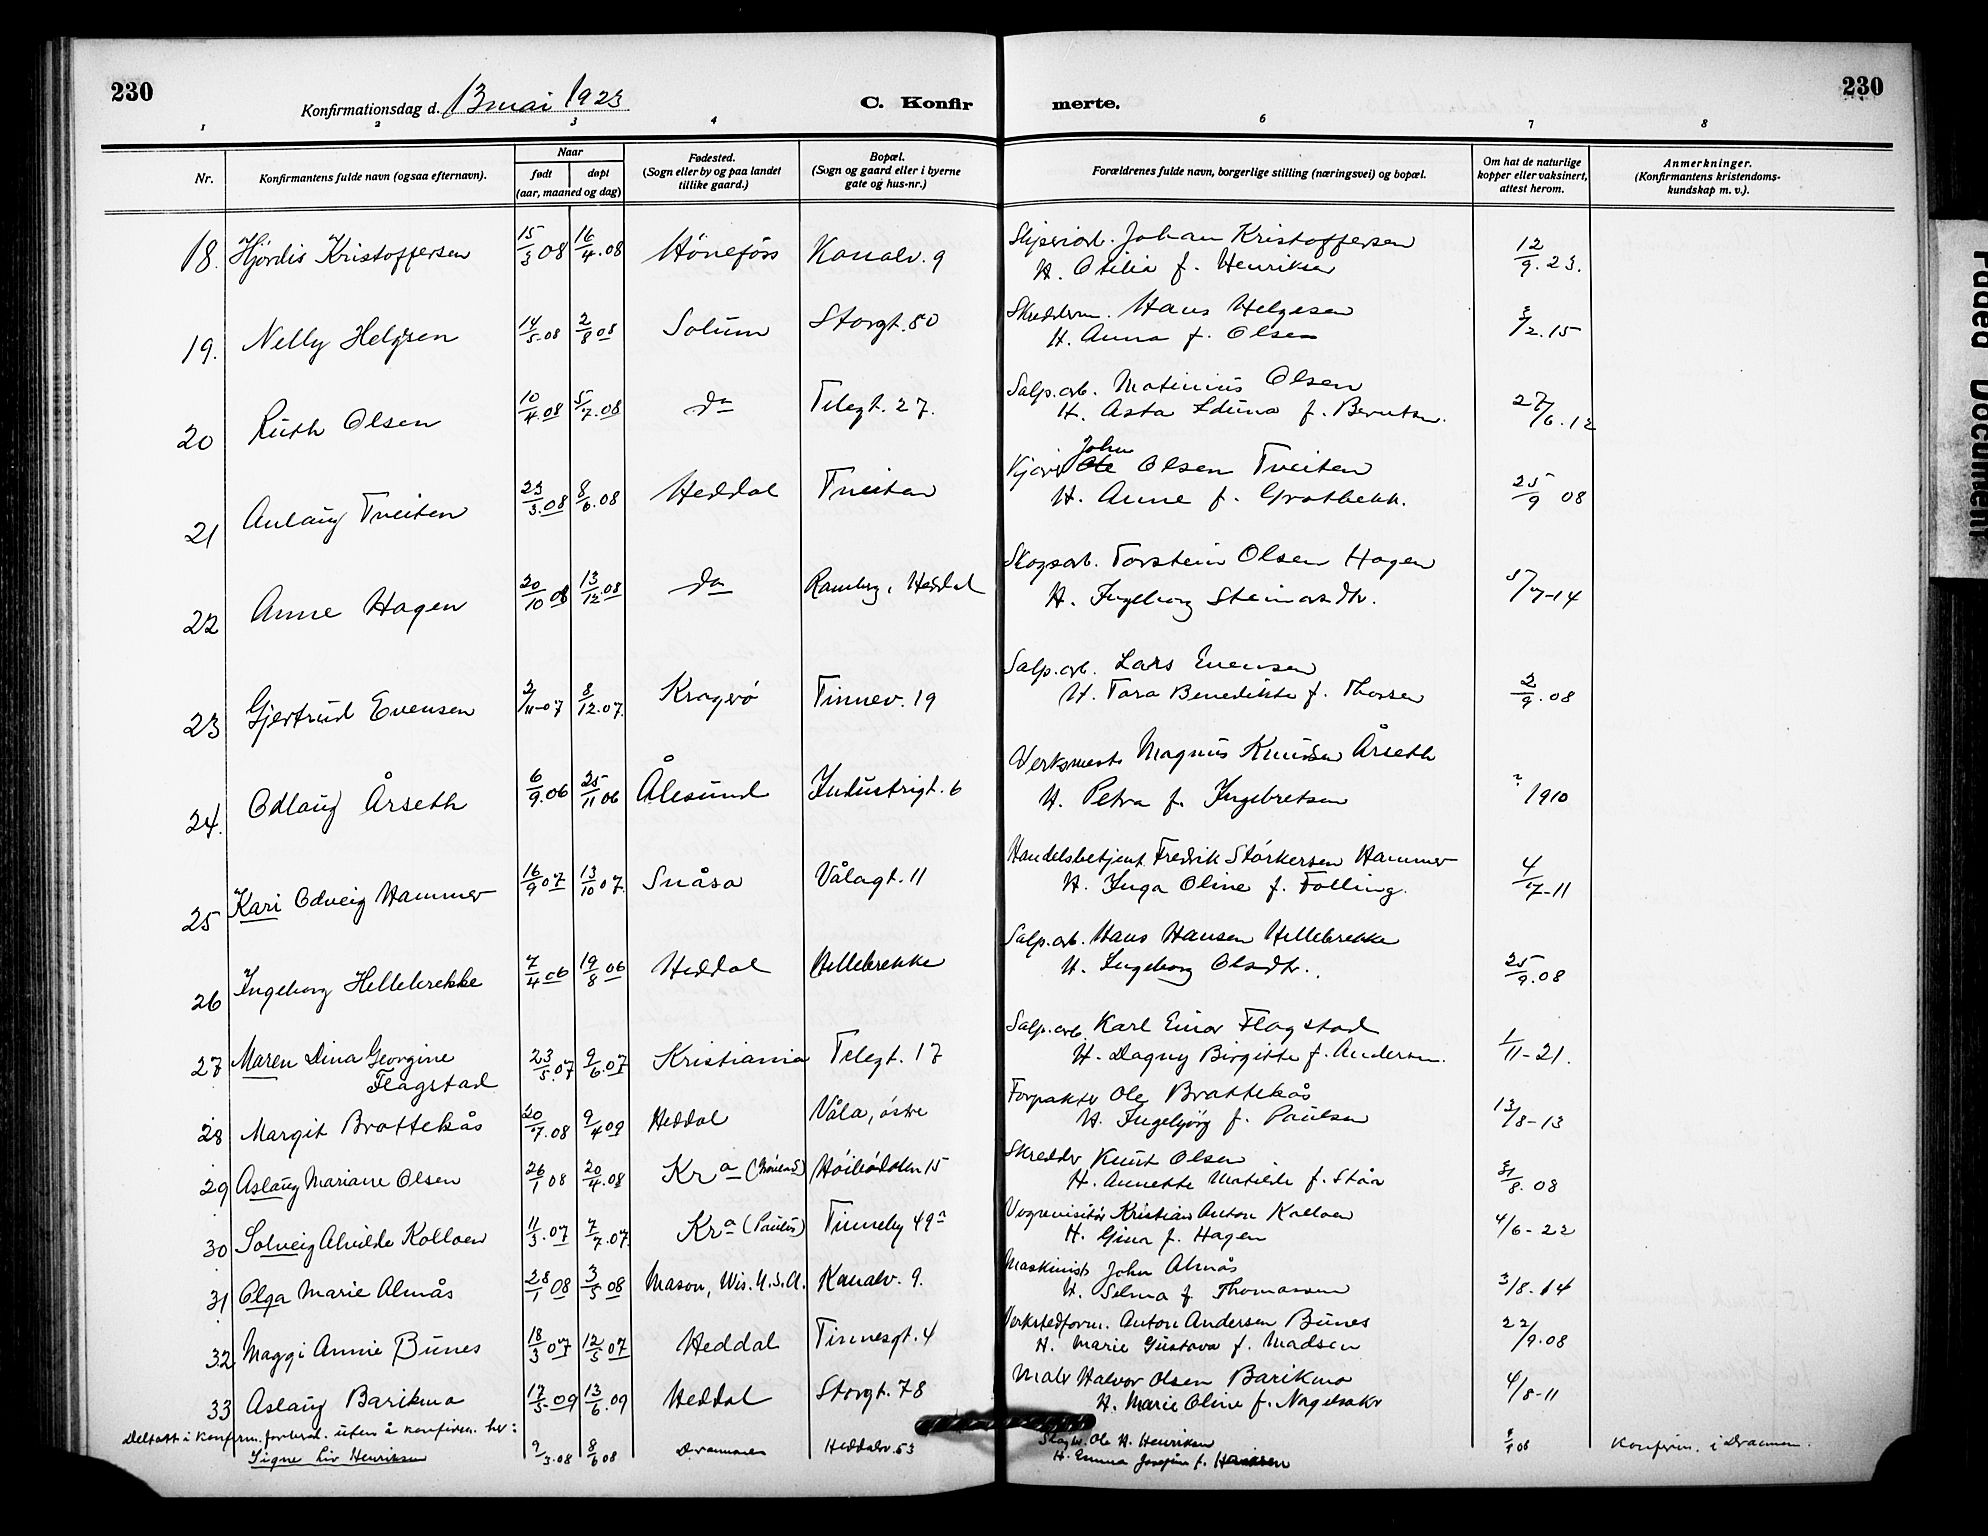 230
Konfirmationsdag d. 13 mai 1923
C. Konfirmerte.
230
1 2 3 4 6 7 8
Nr.
Konfirmantens fulde navn (ogsaa efternavn).
Naar
født døpt
(aar, maaned og dag)
Fødested.
(Sogn eller by og paa landet
tillike gaard.)
Bopæl.
(Sogn og gaard eller i byerne
gate og hus-nr.)
Forældrenes fulde navn, borgerlige stilling (næringsvei) og bopæl.
Om hat de naturlige
kopper eller vaksinert,
attest herom.
Anmerkninger.
(Konfirmantens kristendoms-
kundskap m. v.).
18. Hjördis Kristoffersen 15/3 08 16/4.08 Hönefoss Kanalv. 9 Johan Kristoffersen 12/9.23.
H. Otilia f. Henriksen
19. Nelly Helgesen 14/5.08 2/8 08 Solum Storgt. 80 Skredderm. Hans Helgesen 3/2.15
H. Anna f. Olsen
20 Ruth Olsen 10/4.08 5/7.08 do Telegt. 27. Salp.arb. Matinius Olsen 27/6.12
H. Asta Iduna f. Berntsen.
21 Aslaug Tveiten 23/3.08 8/6.08 Heddal Tveiten John Olsen Tveiten 25/9 08
H. Anne f. Grotbekk.
22 Anne Hagen 20/10 08 13/12.08 do Ramberg, Heddal Skogsarb. Torstein Olsen Hagen 5/7-14
H. Ingeborg Steinarsdtr.
23 Gjertrud Evensen 2/11-07 8/12.07. Kragerö Tinnev. 19 Salp.arb. Lars Evensen 2/9.08
H. Tora Benedikte f. Thorsen
24. Odlaug Årseth 6/9.06 25/11 06 Ålesund Industrigt. 6 Verksmest. Magnus Knudsen Årseth ? 1910
H. Petra f. Ingebretsen
25 Kari Odveig Hammer 16/9 07 13/10 07. Snåsa Vålagt. 11 Handelsbetjent Fredrik Störkersen Hammer 4/7-11
H. Inga Oline f. Følling.
26 Ingeborg Hellebrekke 7/4 06 19/8 06 Heddal Hellebrekke Salp.arb. Hans Hansen Hellebrekke 25/9.08
H. Ingeborg Olsdtr.
27 Maren Dina Georgine 23/5.07 9/6.07 Kristiania Telegt. 17 Salp.arb. Karl Einar Flagstad 1/11-21.
Flagstad H. Dagny Birgitte f. Andersen.
28 Margit Brattekås 20/7.08 9/4 09 Heddal Våla, östre Forpakter Ole Brattekås 13/8-13
H. Ingebjörg f. Paulsen
29 Aslaug Mariane Olsen 26/1 08 20/4.08 Kra 15 Skredder Knut Olsen 3/8.08
H. Annette Matilde f. Ståa
30 Solveig Alvilde Kolloen 11/3.07 7/7.07. Kra (Paulus) Tinneby 49a Vognvisitör Kristian Anton Kolloen 4/6-22
H. Gina f. Hagen
31 Olga Marie Almås 28/1 08 3/5 08 Mason, Wis. U.S.A. Kanalv. 9. Maskinist John Almås 3/8-14
H. Selma f. Thomassen
32 Maggi Annie Bunes 18/3 07 12/5 07 Heddal Tinnesgt. 4 Verkstedform. Anton Andersen Bunes 22/9.08
H. Marie Gustava f. Madsen
33 Aslaug Barikmo 17/5-09 13/6.09 Heddal Storgt. 78 Maler Halvor Olsen Barikmo 4/8-11
H. Marie Oline f. Nagelsaker
Deltatt i konfirm.forbered. uten å konfirm. her:
Signe Liv Henriksen 9/3.08 8/6 08 Drammen Heddalsv. 53 Ole H. Henriksen Konfirm. i Drammen.
H. Emma Josefine f. Hansen
Faded Document